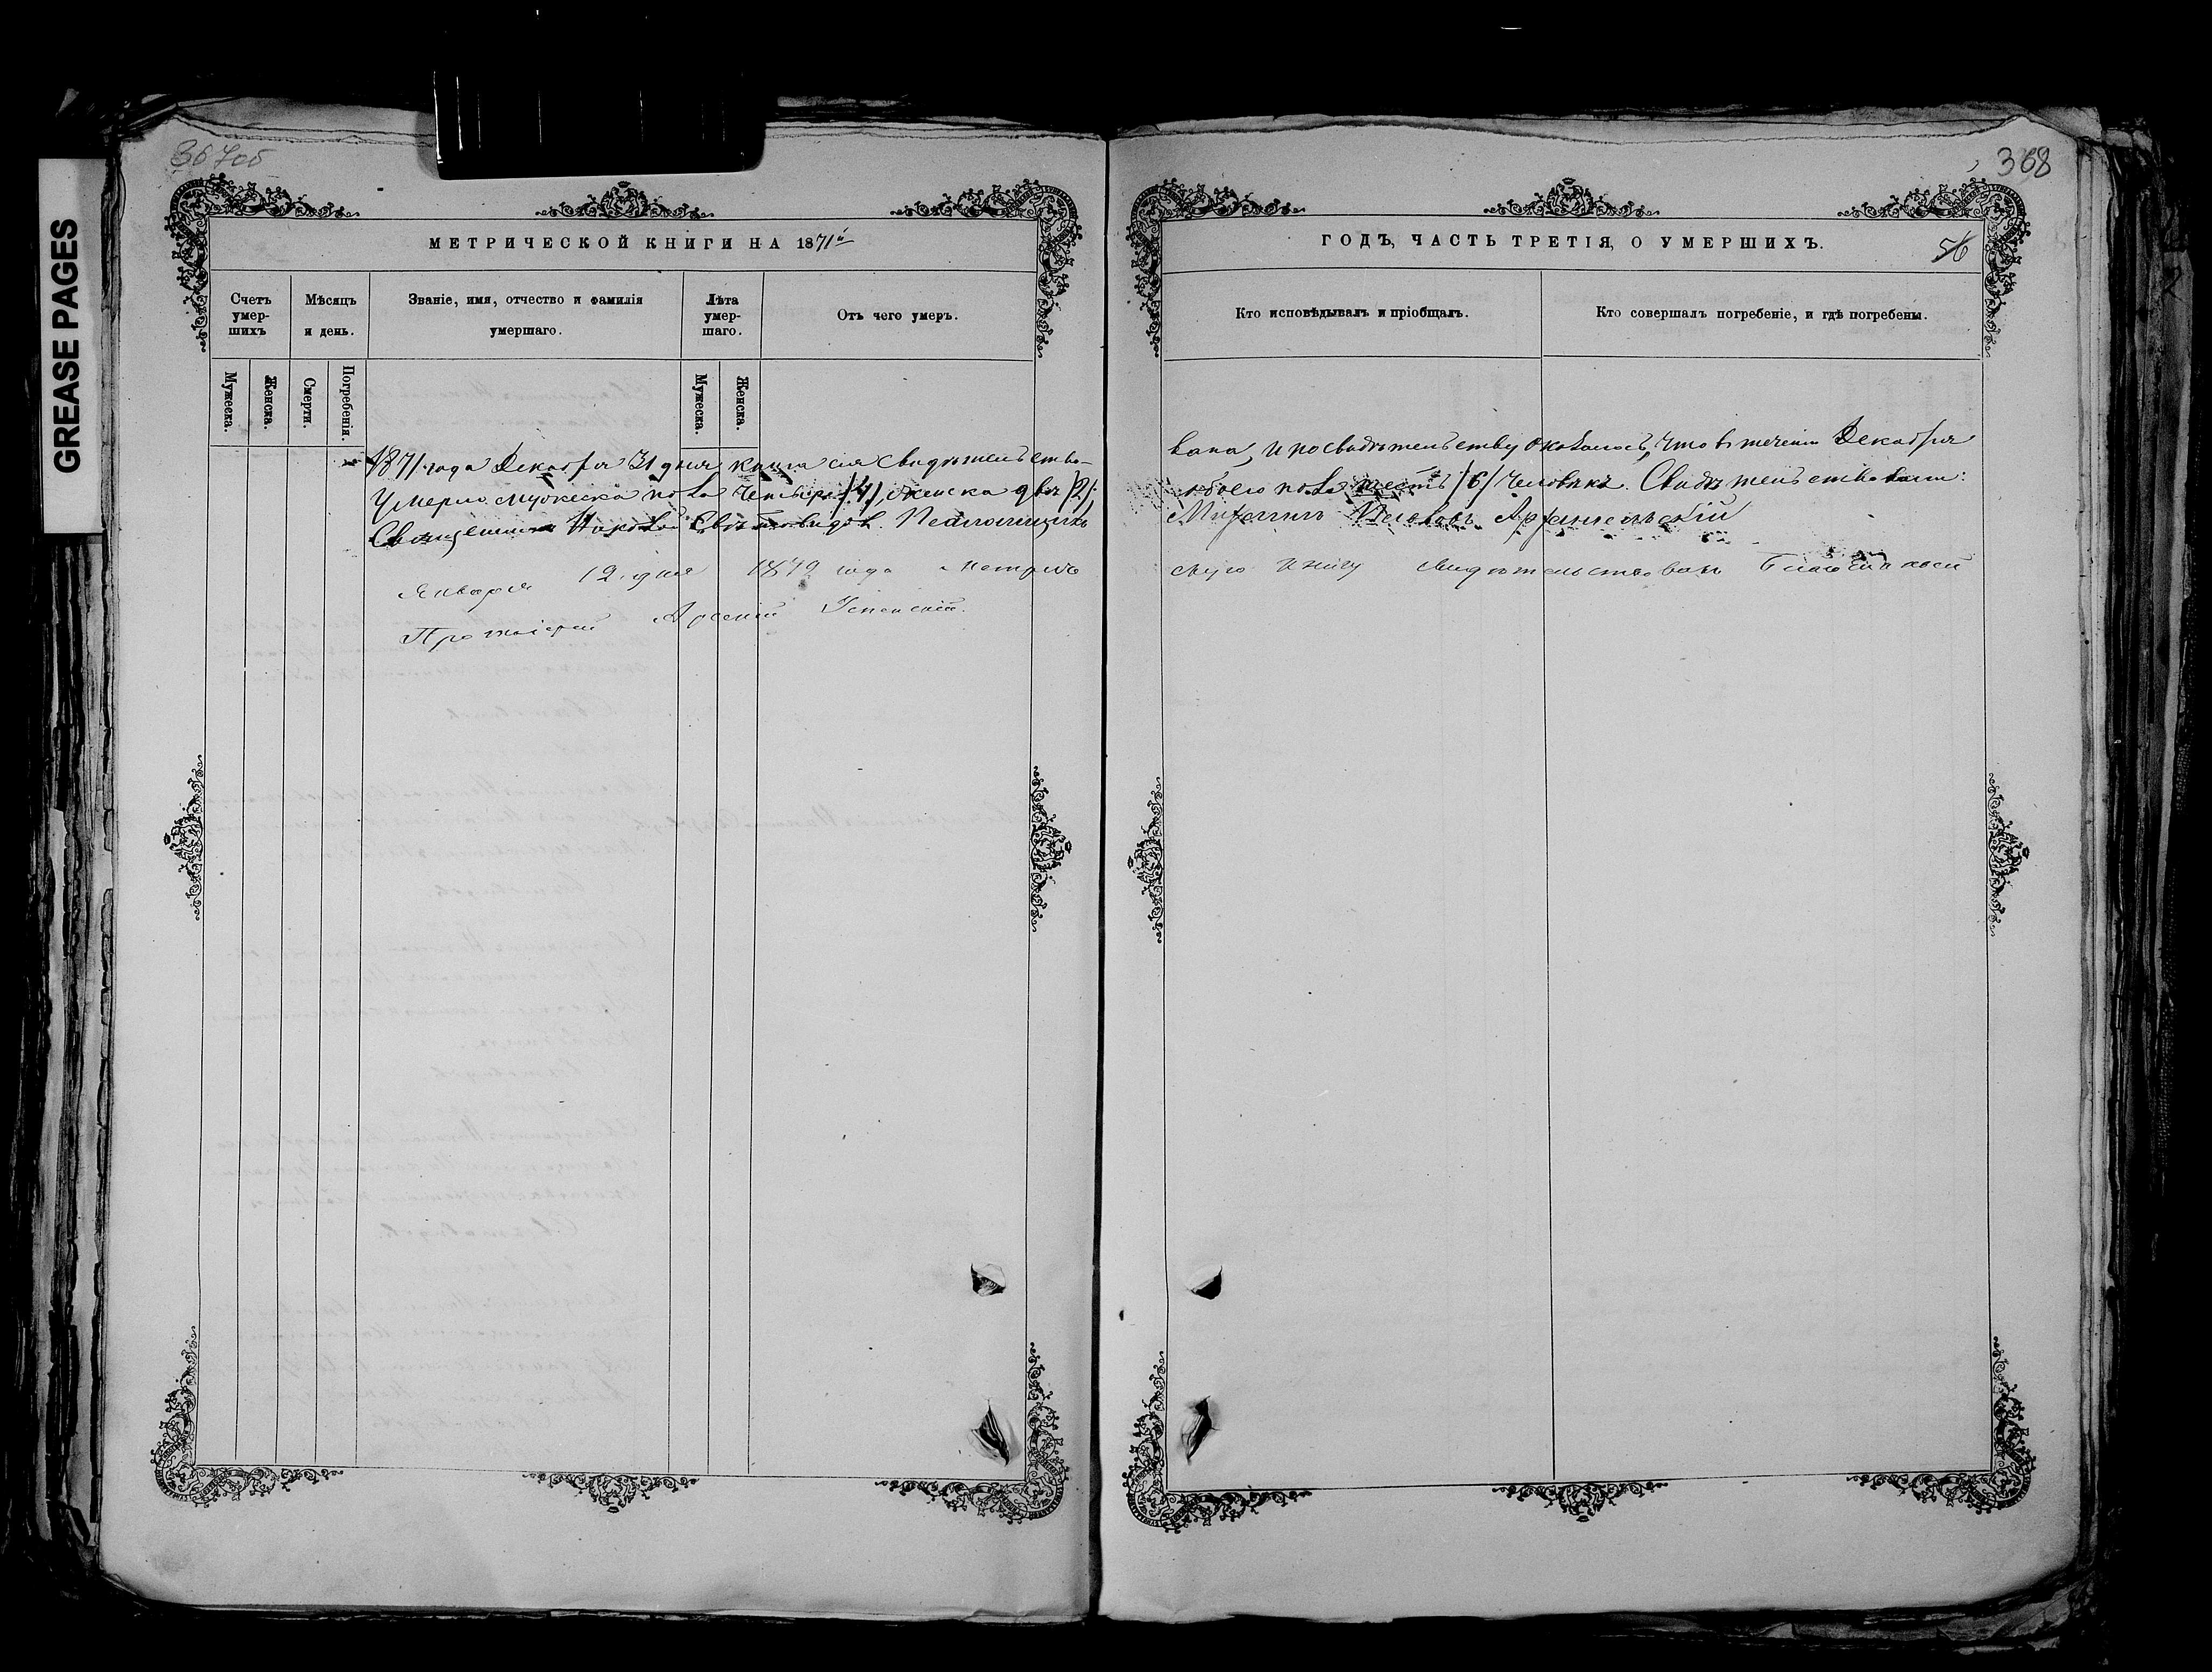 GREASE PAGES
367об
368
МЕТРИЧЕСКОЙ КНИГИ НА 1871й
ГОДЪ, ЧАСТЬ ТРЕТІЯ, О УМЕРШИХЪ.
56
Счетъ умер-
шихъ
Мѣсяцъ
и день.
Званіе, имя, отчество и фамилія
умершаго.
Лѣта
умер-
шаго.
Отъ чего умеръ.
Кто исповѣдывалъ и пріобщалъ.
Кто совершалъ погребеніе, и гдѣ погребены.
Мужеска.
Женска.
Смерти.
Погребенія.
Мужеска.
Женска.
1871 года Декабря 31 дня книга сія свидѣтельство-
вана, и по свидѣтельству оказалось, что въ теченіи Декабря
умерло мужеска пола четыре /4/, женска двѣ /2/;
обоего пола шесть /6/ человѣкъ. Свидѣтельствовали:
Священникъ Николай Свѣтовидовъ. Псаломщикъ
Архангельскій
Января 12 дня 1872 года метриче
скую книгу свидѣтельствовалъ Благочинный
Протоіерей Арсеній Успенскій.